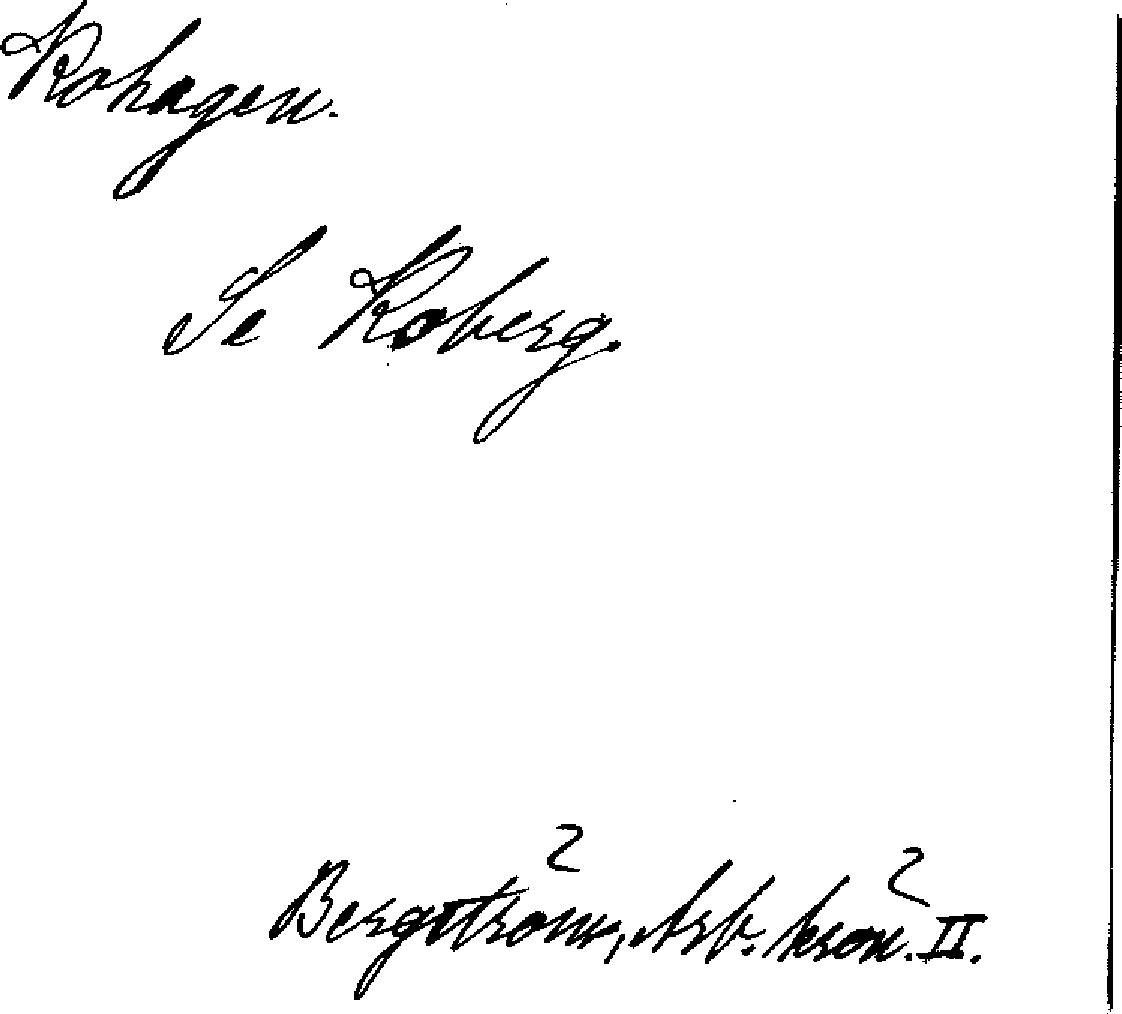 Kohagen.
Se Koberg.
Bergström, Arb. krön. II.